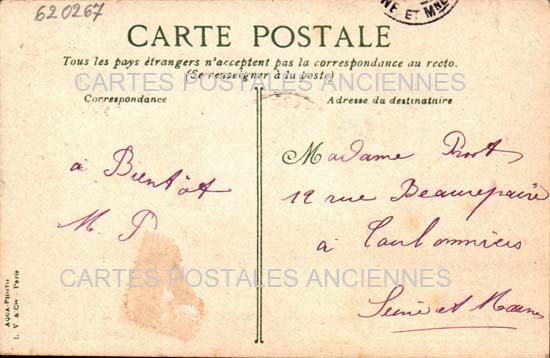 620267
NE ET MNE
CARTE POSTALE
Tous les pays étrangers n'acceptent pas la correspondance au recto.
(Se renseigner à la poste)
CARTES POSTALES ANCIENNES
Correspondance
Adresse du destinataire
à Bientôt
M. P
Madame
12 rue Beaurepaire
à Coulommiers
Seine et Marne
CARTES POSTALES ANCIENNES
AQUA-PHOTO
L. V. & Cie - Paris